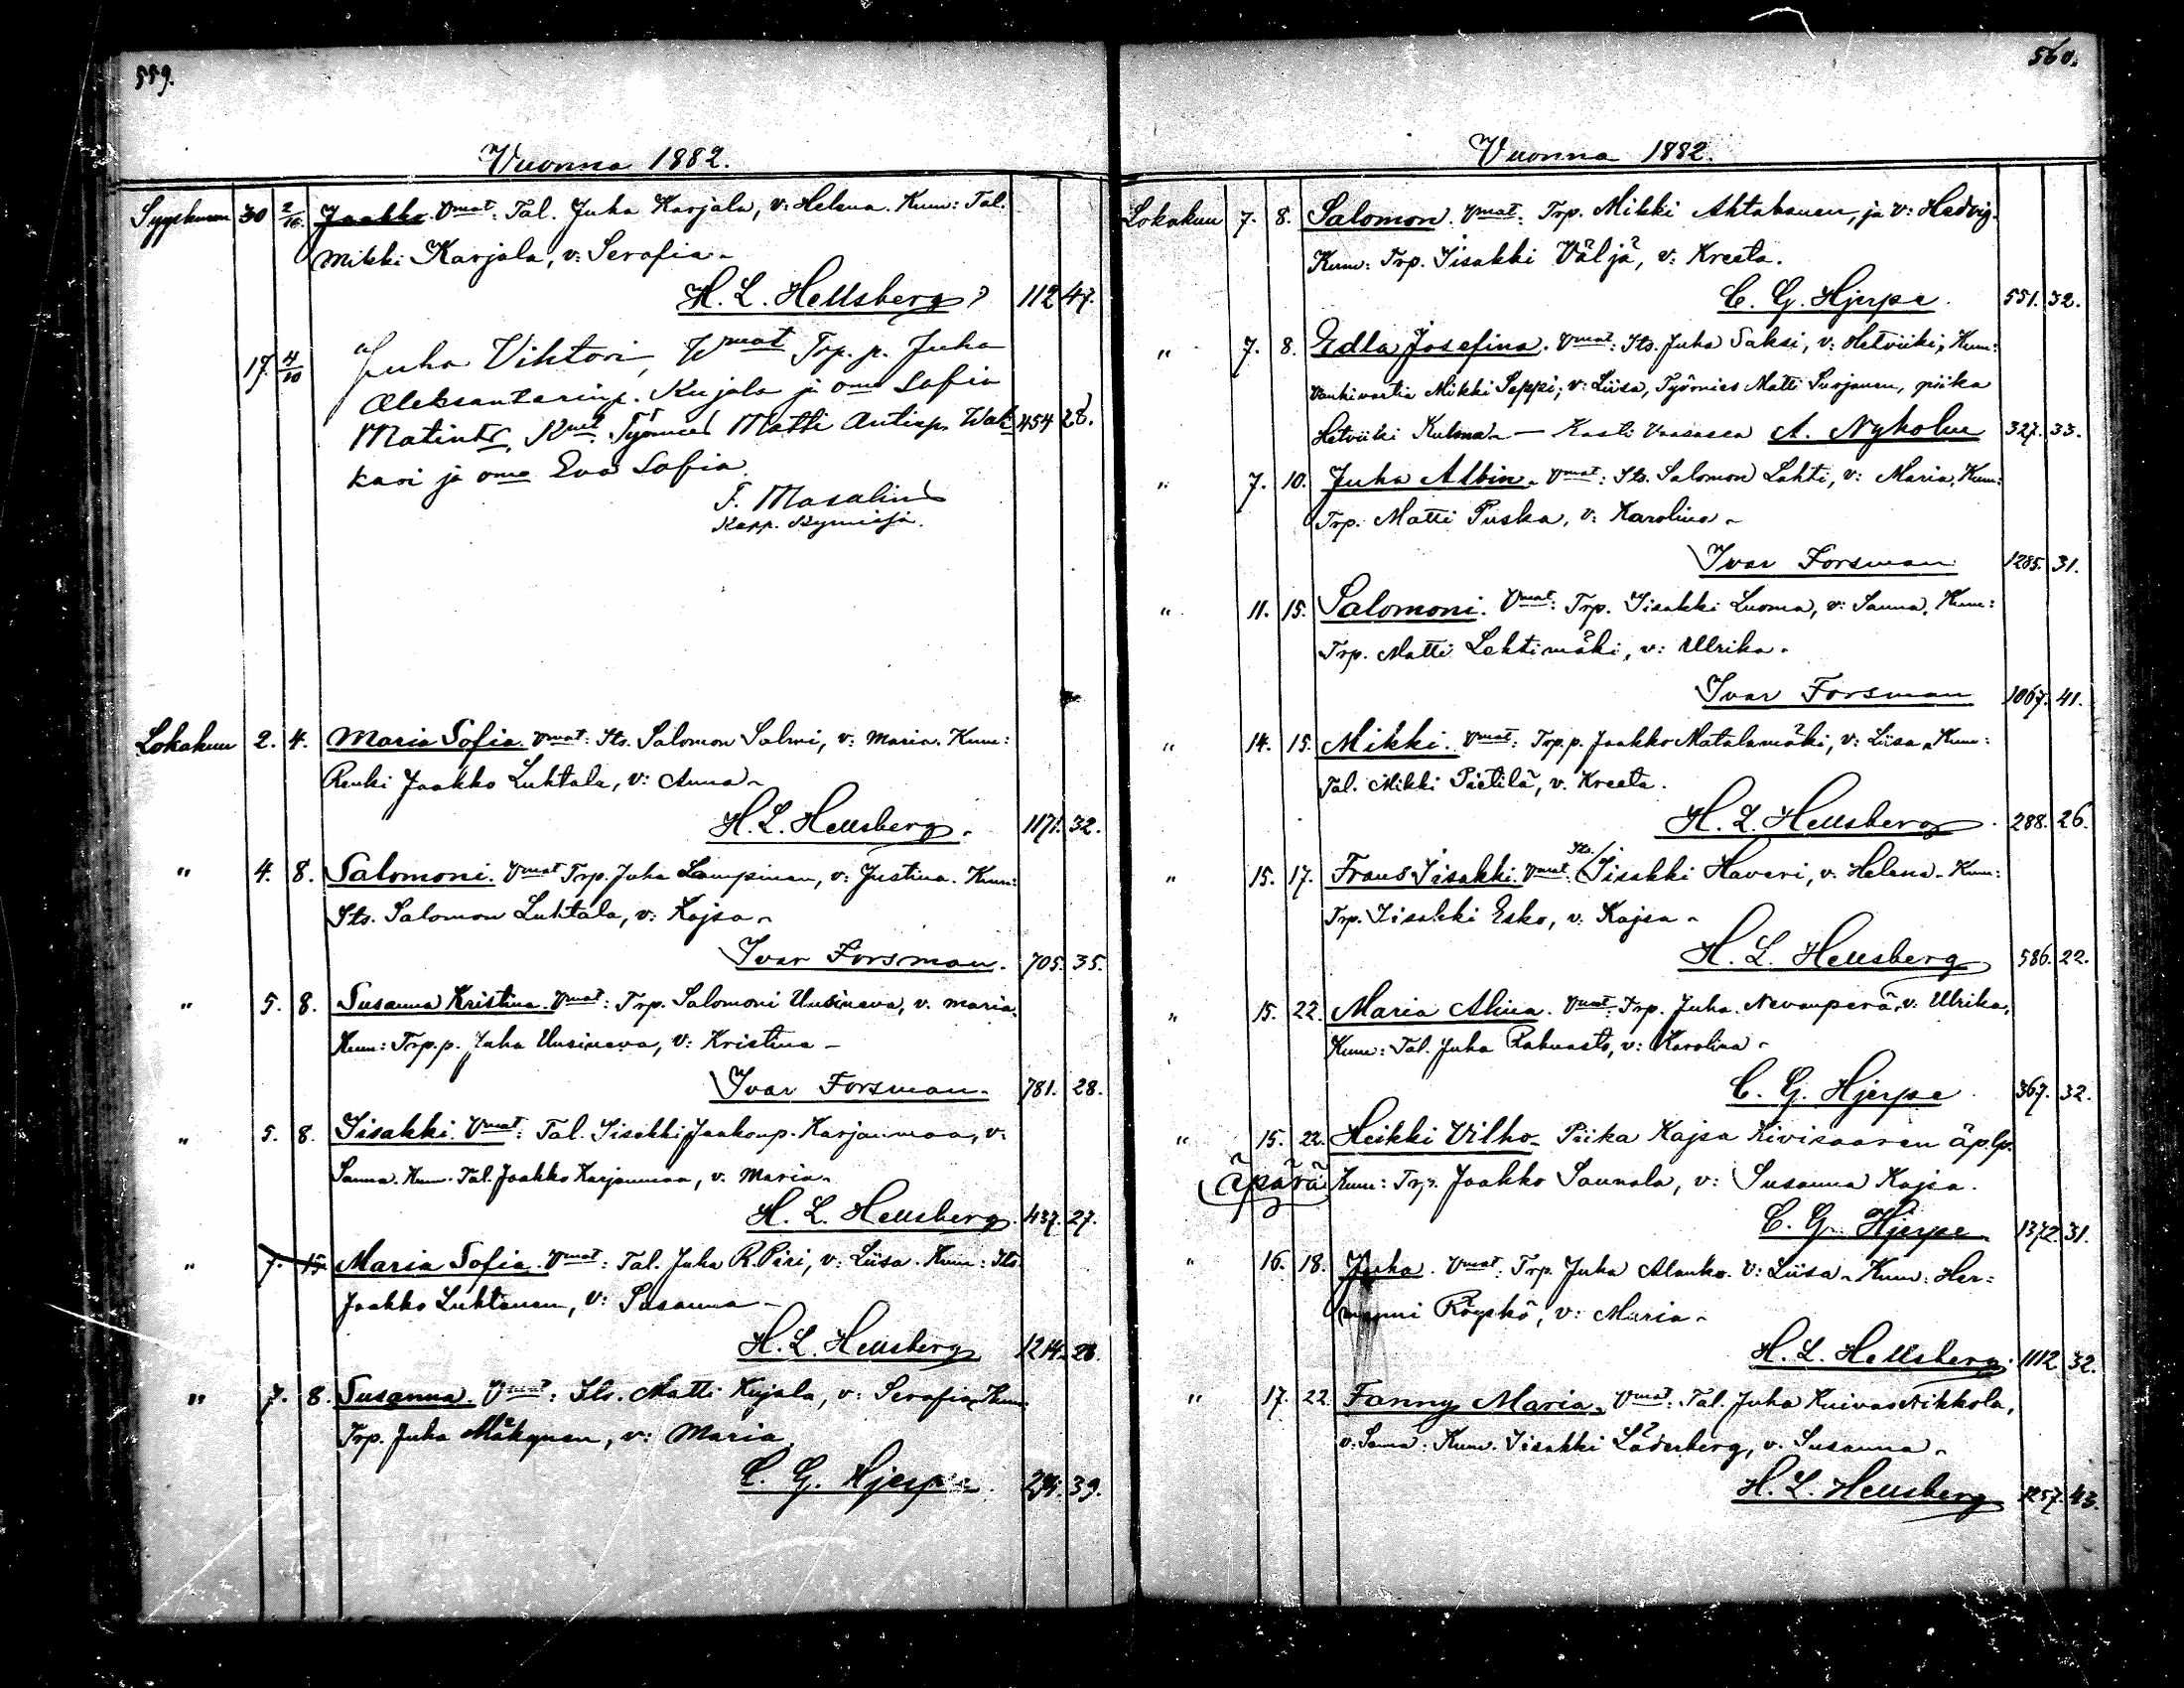 559.
Vuonna 1882.
Syyskuun 30 2/10. Jaakko. Vmat: Tal. Juha Karjala, v: Helena. Kum: Tal.
Mikki Karjala, v: Serafia.
H. L. Hellsberg 112 47.
17. 4/10 Juha Vihtori, Wmat Trp. p. Juha
Aleksanterinp. Kujala ja omo Sofia
Matintr, Kmt Työmies Matti Antinp. 454 28.
kari ja omo Eva Sofia.
F. Masalin
Kapp. Kymissä.
Lokakuu 2. 4. Maria Sofia. Vmat: Its. Salomon Salmi, v: Maria. Kum:
Renki Jaakko Luhtala, v: Anna.
H. L. Hellsberg. 1171. 32.
" 4. 8. Salomoni. Vmat Trp. Juha Lampinen, v: Justina. Kum:
Its. Salomon Luhtala, v: Kajsa.
Ivar Forsman. 705. 35.
" 5. 8. Susanna Kristina. Vmat: Trp. Salomoni Uusineva, v. Maria.
Kum: Trp.p. Juha Uusineva, v: Kristina
Ivar Forsman. 781. 28.
" 5. 8. Iisakki. Vmat: Tal. Iisakki Jaakonp. Karjanmaa, v:
Sanna. Kum. Tal. Jaakko Karjanmaa, v: Maria.
H. L. Hellsberg. 437. 27.
" 7. 15. Maria Sofia. Vmat: Tal. Juha R. Piri, v: Liisa. Kum: Its.
Jaakko Luhtanen, v: Susanna
H. L. Hellsberg 1214. 28.
" 7. 8. Susanna. Vmat: Its. Matti Kujala, v: Serafia. Kum:
Trp. Juha Mäkynen, v: Maria
C. G. Hjerpe. 294. 39.
560.
Vuonna 1882.
Lokakuu 7. 8. Salomon. Vmat: Trp. Mikki Ahtahanen, ja v: Hedvig.
Kum: Trp. Iisakki Väljä, v: Kreeta.
C. G. Hjerpe. 551. 32.
" 7. 8. Edla Josefina. Vmat: Its. Juha Saksi, v: Hetviiki, Kum:
Vankivartia Mikki Seppi, v: Liisa, Työmies Matti Surjanen, piika
Hetviiki Kulma. — Kasti Vaasassa A. Nyholm 327. 33.
" 7. 10. Juha Albin. Vmat: Its. Salomon Lahti, v: Maria. Kum:
Trp. Matti Puska, v: Karolina.
Ivar Forsman 1285. 31.
" 11. 15. Salomoni. Vmat: Trp. Iisakki Luoma, v: Sanna. Kum:
Trp. Matti Lehtimäki, v: Ulrika.
Ivar Forsman 1067. 41.
" 14. 15. Mikki. Vmat: Trp.p. Jaakko Matalamäki, v: Liisa. Kum:
Tal. Mikki Pietilä, v. Kreeta.
H. L. Hellsberg. 288. 26.
" 15. 17. Frans Iisakki. Vmat: Its. Iisakki Haveri, v: Helena. Kum:
Trp. Iisakki Esko, v. Kajsa.
H. L. Hellsberg 586. 22.
" 15. 22. Maria Alina. Vmat: Trp. Juha Nevanperä, v: Ulrika,
Kum: Tal. Juha Rahnasto, v: Karolina.
C. G. Hjerpe. 367. 32.
" 15. 22. Heikki Vilho. Piika Kajsa Kivisaaren äp.lp.
(äpärä) Kum: Trp. Jaakko Saunala, v: Susanna Kajsa.
C. G. Hjerpe. 1372. 31.
" 16. 18. Juha. Vmat: Trp. Juha Alanko. v: Liisa. Kum: Her=
manni Röyskö, v: Maria.
H. L. Hellsberg. 1112 32.
" 17. 22. Fanny Maria. Vmat: Tal. Juha Kuivas Nikkola,
v. Sanna. Kum. Iisakki Läderberg, v. Susanna.
H. L. Hellsberg 1257. 43.